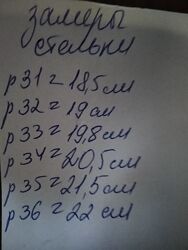 замеры
стельки
р31=18,5см
р32=19см
р33=19,8см
р34=20,5см
р35=21,5см
р36=22см